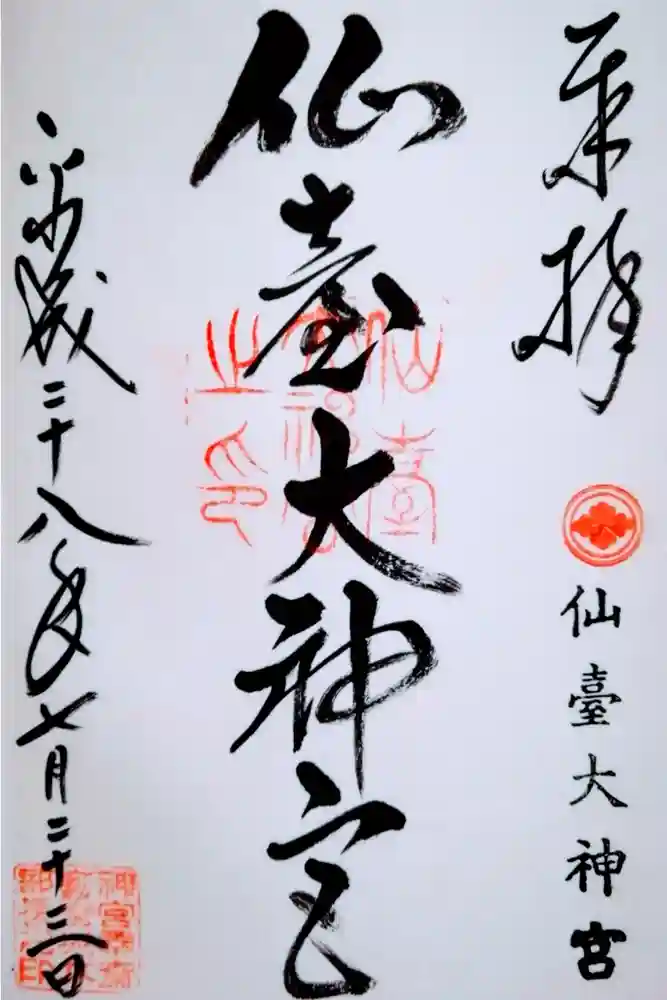 奉拝
仙臺大神宮
仙臺大神宮
仙臺大神宮之印
平成二十八年七月二十三日